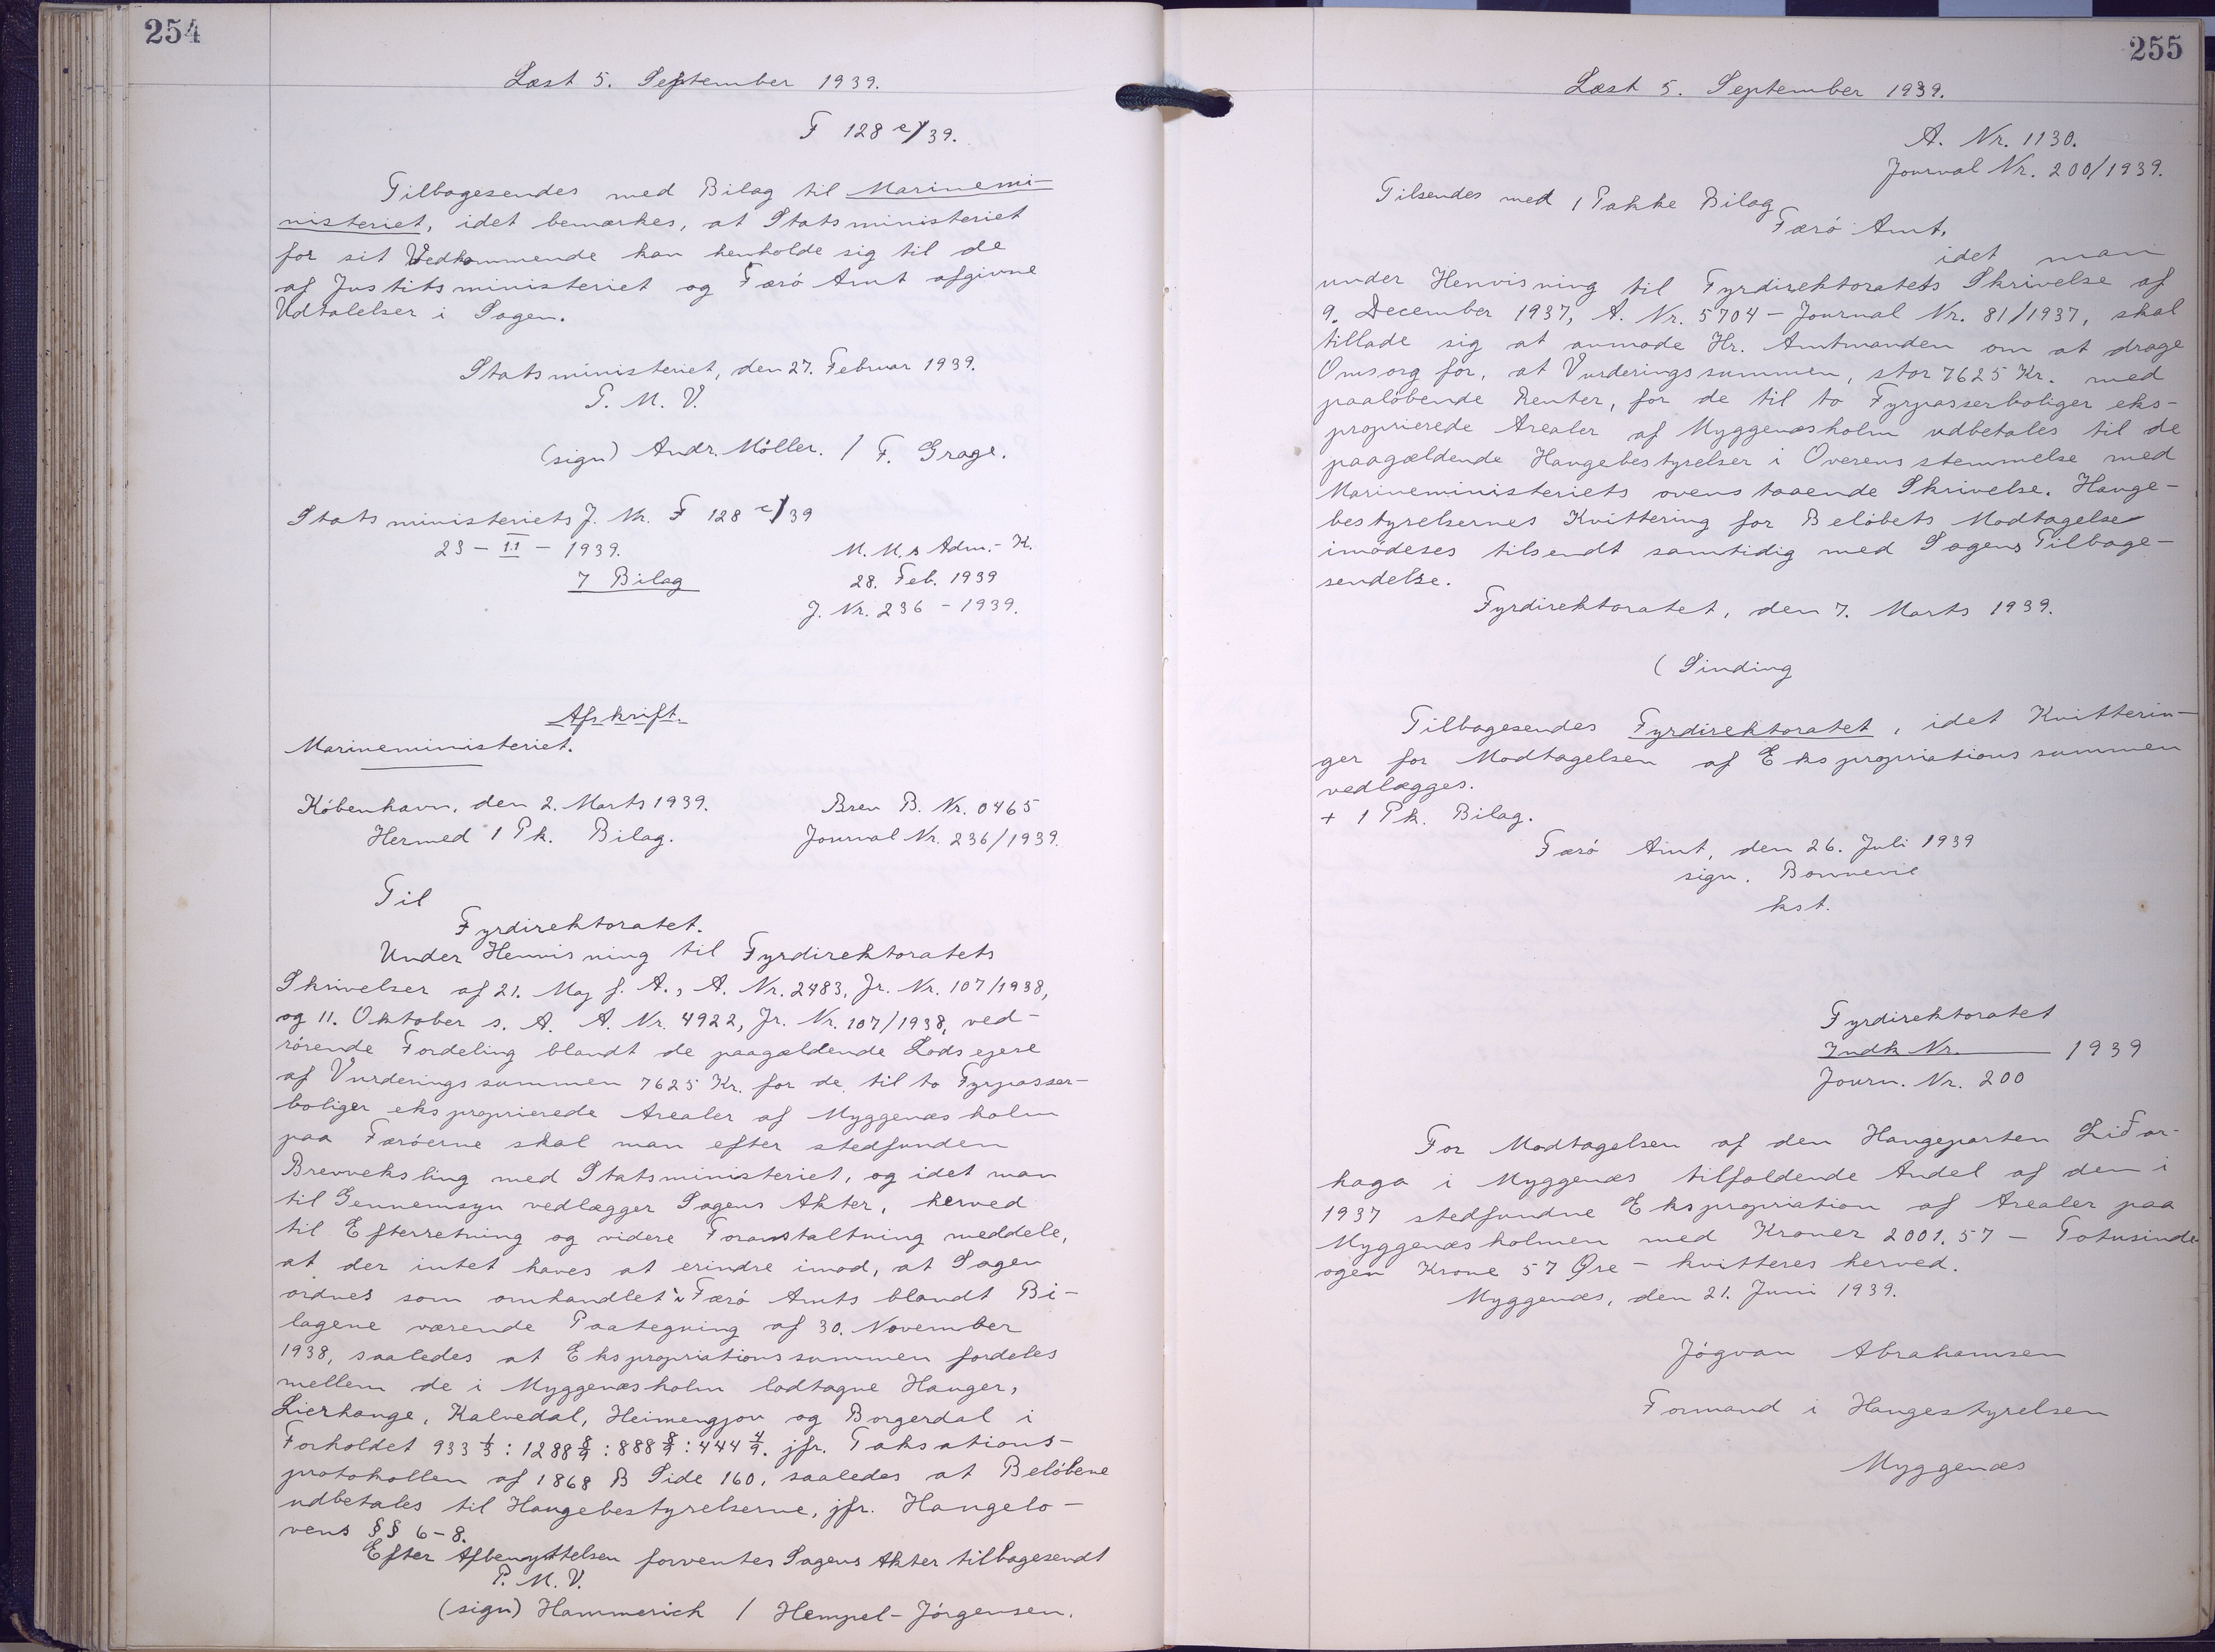 254
Læst 5. September 1939.
F 128 c/39.
Tilbagesendes med Bilag til Marinemi-
nisteriet, idet bemærkes, at Statsministeriet
for sit Vedkommende kan henholde sig til de
af Justitsministeriet og Færö Amt afgivne
Udtalelser i Sagen.
Statsministeriet, den 27. Februar 1939.
P. M. V.
(sign) Andr. Möller. / F. Grage.
Statsministeriets J. Nr. F 128 c/39
23 - II - 1939.
7 Bilag
M. M.s Adm.- K.
28. Feb. 1939
J. Nr. 236 - 1939.
Afskrift.
Marineministeriet.
Köbenhavn, den 2. Marts 1939.
Hermed 1 Pk. Bilag.
Brev B. Nr. 0465
Journal Nr. 236/1939.
Til
Fyrdirektoratet.
Under Henvisning til Fyrdirektoratets
Skrivelser af 21. Maj f. A., A. Nr. 2483, Jr. Nr. 107/1938,
og 11. Oktober s. A. A. Nr. 4922, Jr. Nr. 107/1938, ved-
rörende Fordeling blandt de paagældende Lodsejere
af Vurderingssummen 7625 Kr. for de til to Fyrpasser-
boliger eksproprierede Arealer af Myggenæsholm
paa Færöerne skal man efter stedfunden
Brevveksling med Statsministeriet, og idet man
til Gennemsyn vedlægger Sagens Akter, herved
til Efterretning og videre Foranstaltning meddele,
at der intet haves at erindre imod, at Sagen
ordnes som omhandlet i Færö Amts blandt Bi-
lagene værende Paategning af 30. November
1938, saaledes at Ekspropriationssummen fordeles
mellem de i Myggenæsholm lodtagne Hauger,
Lierhauge, Kalvedal, Heimengjov og Borgerdal i
Forholdet 933 1/3 : 1288 8/9 : 888 8/9 : 444 4/9. jfr. Taksations-
protokollen af 1868 B Side 160, saaledes at Belöbene
udbetales til Haugebestyrelserne, jfr. Haugelo-
vens §§ 6-8.
Efter Afbenyttelsen forventes Sagens Akter tilbagesendt
P. M. V.
(sign) Hammerich / Hempel-Jörgensen.
255
Læst 5. September 1939.
A. Nr. 1130.
Journal Nr. 200/1939.
Tilsendes med 1 Pakke Bilag
Færö Amt,
idet man
under Henvisning til Fyrdirektoratets Skrivelse af
9. December 1937, A. Nr. 5704 - Journal Nr. 81/1937, skal
tillade sig at anmode Hr. Amtmanden om at drage
Omsorg for, at Vurderingssummen, stor 7625 Kr. med
paalöbende Renter, for de til to Fyrpasserboliger eks-
proprierede Arealer af Myggenæsholm udbetales til de
paagældende Haugebestyrelser i Overensstemmelse med
Marineministeriets ovenstaaende Skrivelse. Hauge-
bestyrelsernes Kvittering for Belöbets Modtagelse
imödeses tilsendt samtidig med Sagens Tilbage-
sendelse.
Fyrdirektoratet, den 7. Marts 1939.
( Sinding
Tilbagesendes Fyrdirektoratet, idet Kvitterin-
ger for Modtagelsen af Ekspropriationssummen
vedlægges.
+ 1 Pk. Bilag.
Færö Amt, den 26. Juli 1939
sign. Bonnevie
kst.
Fyrdirektoratet
Indk Nr. 1939
Journ. Nr. 200
For Modtagelsen af den Haugeparten Liðar-
haga i Myggenæs tilfaldende Andel af den i
1937 stedfundne Ekspropriation af Arealer paa
Myggenæsholmen med Kroner 2001,57 - Totusinde
ogen Krone 57 Øre - kvitteres herved.
Myggenæs, den 21. Juni 1939.
Jógvan Abrahamsen
Formand i Haugestyrelsen
Myggenæs